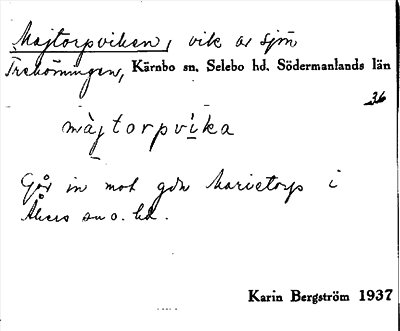 Majtorpviken, vik av sjön
Trehörningen, Kärnbo sn, Selebo hd, Södermanlands län
36
màjtorpvika
Går in mot gdn Marietorp i
Åkers sn o. hd.
Karin Bergström 1937